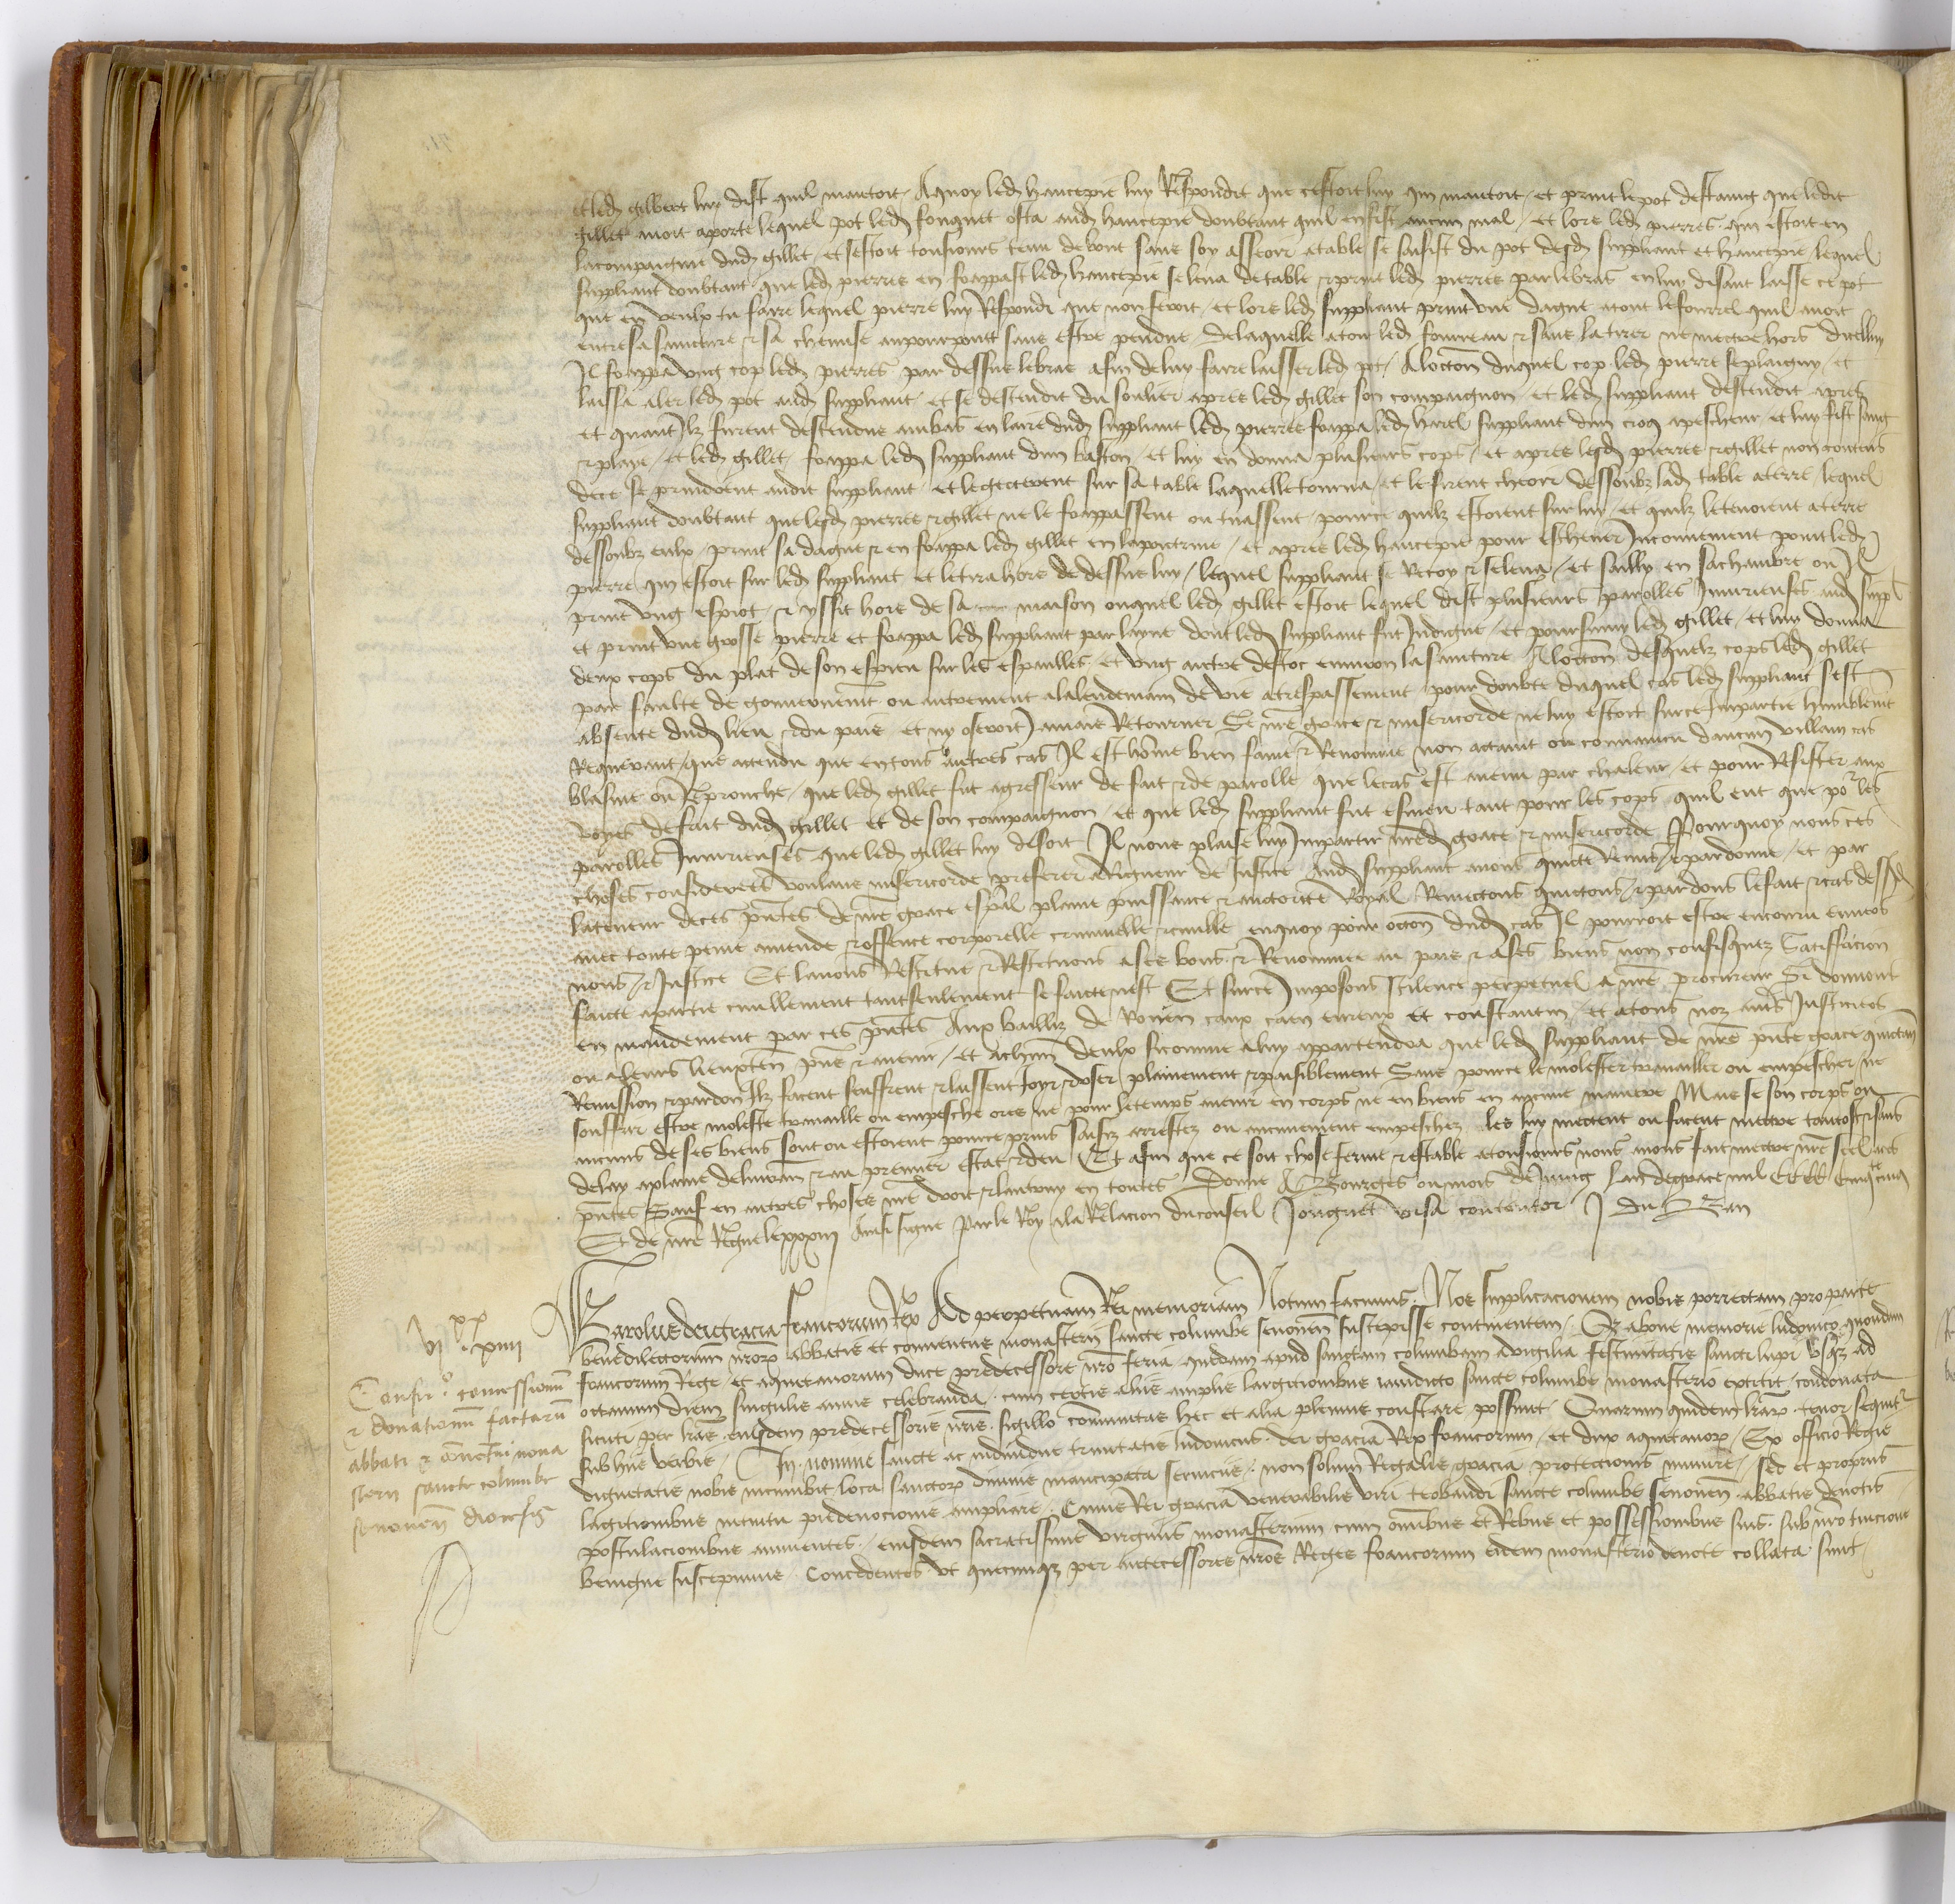 et led gilbert luy dist quil mantoit Aquoy led hancepie luy Respondit que cestoit luy qui mantoit et print le pot destaing que ledit
gillet avoit aporte lequel pot led fouquet osta aud hancepie doubtant quil en fist aucun mal et lors led pierres qui estoit en
lacompaignie dud gillet et sestoit tousiours tenu debout sans soy asseoir atable se saisist du pot desd suppliant et hancepie lequel
suppliant doubtant que led pierres en frappast led hancepie se leva de table & print led pierres par le bras en luy disant laisse ce pot
que en veulx tu faire lequel pierre luy Respondi que non feroit et lors led suppliant print une dague atout le fourrel quil avoit
entre sa saincture & sa chemise au pourpoint sans estre pendue de laquelle atout led fourreau & sans la tirer ne mectre hors dicelluy
Il frappa ung cop led pierres par dessus le bras afin de luy faire laisser led pot A loccon duquel cop led pierre se plaigny et
laissa aler led pot aud suppliant et se descendit du soulier apres led gillet son compaignon et led suppliant descendit apres
et quant Ilz furent descenduz ambas en laire dud suppliant led pierres frappa led harel suppliant dun croq apescheur et luy fist sang
& playe et led gillet frappa led suppliant dun baston et luy en donna plusieurs cops et apres lesd pierres & gillet non contens
de ce se prindrent audit suppliant et le gecterent sur sa table laquelle tourna et le firent cheoir dessoubz lad table aterre lequel
suppliant doubtant que lesd pierres & gillet ne le frappassent ou tuassent pource quilz estoient sur luy et quilz le tenoient aterre
dessoubz eulx print sa dague & en frappa led gillet en la poictrine et apres led hancepie pour eschever Inconvenient print led
pierre qui estoit sur led suppliant et le tira hors de dessus luy lequel suppliant se Recoy & se leva et sailly en sa chambre ou Il
print ung espiot & yssit hors de sa maison ouquel led gillet estoit lequel dist plusieurs parolles Iniurieuses aud suppl
et print une grosse pierre et frappa led suppliant par layne dont led suppliant fut Indigne et poursuivy led gillet et luy donna
deux cops du plat de son espieu sur les espaulles et ung autre destoc environ la saincture A loccon desquelz cops led gillet
par faulte de gouvernement ou autrement alalendemain de vie atrespassement pour doubte duquel cas led suppliant sest
absente dud lieu & du pais et ny oseroit Iamais Retourner Se nre grace & misericorde ne luy estoit surce Impartie humblement
Requerant que attendu que en tous autres cas Il est homme bien fame & Renomme non actaint ou convaincu daucun villain cas
blasme ou Reprouche que led gillet fut agresseur de fait & de parolle que le cas est avenu par chaleur et pour Resister aux
voyes de fait dud gillet et de son compaignon et que led suppliant fut esmeu tant pour les cops quil eut que pour les
parolles Iniurieuses que led gillet luy disoit Il nous plaise luy Impartir nosd grace & misericorde Pourquoy nous ces
choses considerees voulans misericorde preferer a Rigueur de Justice Aud suppliant avons quicte Remis & pardonne et par
la teneur de ces pntes de nre grace espal plaine puissance & auctorite Royal Remectons quictons & pardons le fait & cas dessusd
avec toute peine amende & offence corporelle criminelle & civille enquoy pour occon dud cas Il pourroit estre encouru envers
nous & Justice Et lavons Restitue & Restituons a ses bons & Renommee au pais & a ses biens non confisquez Satisfacion
faicte apartie civillement tant seulement se faicte nest Et surce Imposons scilence perpetuel a nre procureur Si donnons
en mandement par ces pntes Aux bailliz de Rouen caux caen evreux et constantin et atous noz autres Justiciers
ou aleurs lieuxten pns & avenir et achun deulx sicomme aluy apartendra que led suppliant de nre pnte grace quictance
Remission & pardon Ilz facent seuffrent & laissent Joyr & user plainement & paisiblement Sans pource le molester travailler ou empescher ne
souffrir estre moleste travaille ou empesche ores ne pour le temps avenir en corps ne en biens en aucune maniere Mais se son corps ou
aucuns de ses biens sont ou estoient pource prins saisiz arrestez ou aucunement empeschez les luy mectent ou facent mectre tantost & sans
delay aplaine delivran & au premier estat & deu Et afin que ce soit chose ferme & estable atousiours nous avons fait mectre nre scel aces
pntes Sauf en autres choses nre droit & lautruy en toutes Donne A Bourges ou mois de Juing Lan de grace mil CCCC cinqte cinq
Et de nre Regne le xxxiij Ainsi signe Par le Roy ala Relacion du conseil Jouguet visa contentor J du Ban
vj xx xiiij
Confir concessionum
& donationum factarum
abbati & conventui mona
sterii sancte columbe
senonen diocesis
Karolus dei gracia francorum Rex Ad perpetuam Rei memoriam Notum facimus Nos supplicacionem nobis porrectam pro parte
benedilectorum nrorum abbatis et conventus monasterii sancte columbe senonen suscepisse continentem Qz a bone memorie ludovico quondam
francorum Rege et aquetanorum duce predecessore nro feria quedam apud sanctam columbam a vigilia festivitatis sancti lupi usqz ad
octavum diem singulis annis celebranda cum certis aliis amplis largitionibus iamdicto sancte columbe monasterio extitit condonata
sicuti per lras eiusdem predecessoris nris sigillo communitas hec et alia plenius constare possunt Quarum quidem lrarum tenor sequitur
sub hiis verbis In nomine sancte ac individue trinitatis ludovicus dei gracia Rex francorum et dux aquetanorum Ex officio Regie
dignetatis nobis incumbit loca sanctorum divinis mancipata serviciis non solum Regalis gracia protectionis munire sed et propriis
lagitionibus intuitu pie devocionis ampliare Cuius Rei gracia venerabilis viri teobaudi sancte columbe senonen abbatis devotis
postulacionibus annuentes eiusdem sacratissime virginis monasterium cum omnibus et Rebus et possessionibus suis sub nro tuicione
benigne suscepimus Concedentes vt quecumqz per antecessores nros Reges francorum eidem monasterio devote collata sunt